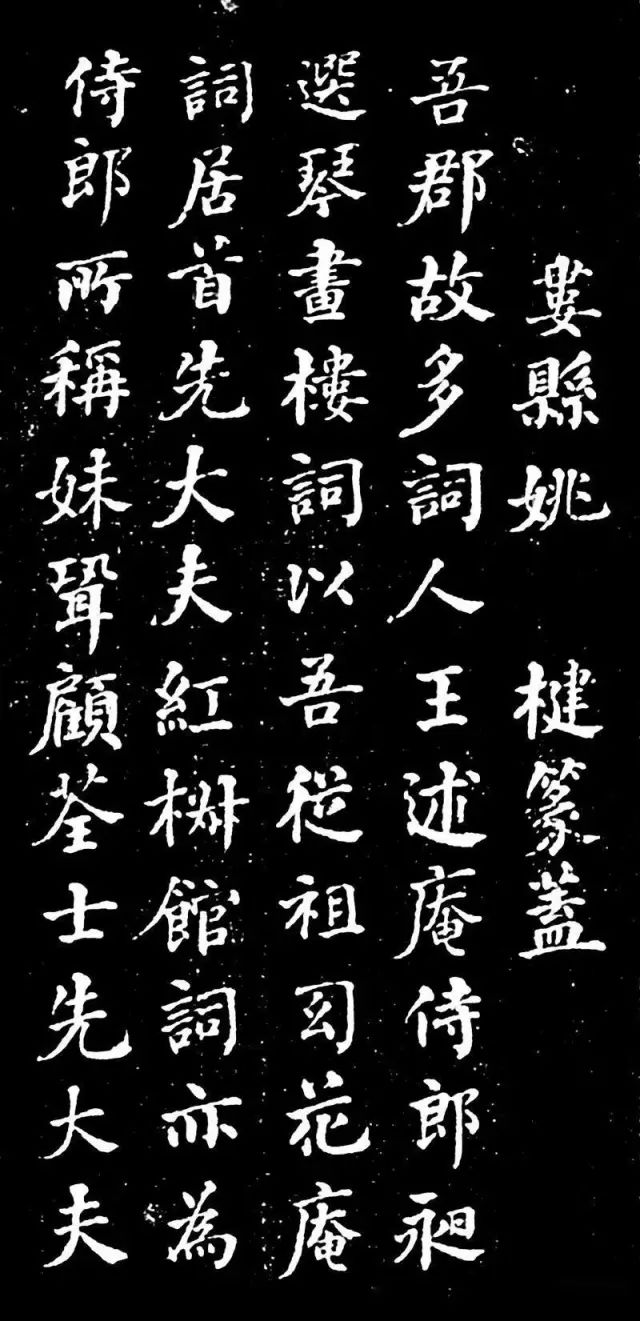 婁縣姚 楗篆蓋
吾郡故多詞人王述庵侍郎昶
選琴畫樓詞以吾從祖幻花庵
詞居首先大夫紅館詞亦為
侍郎所稱妹聟顧荃士先大夫